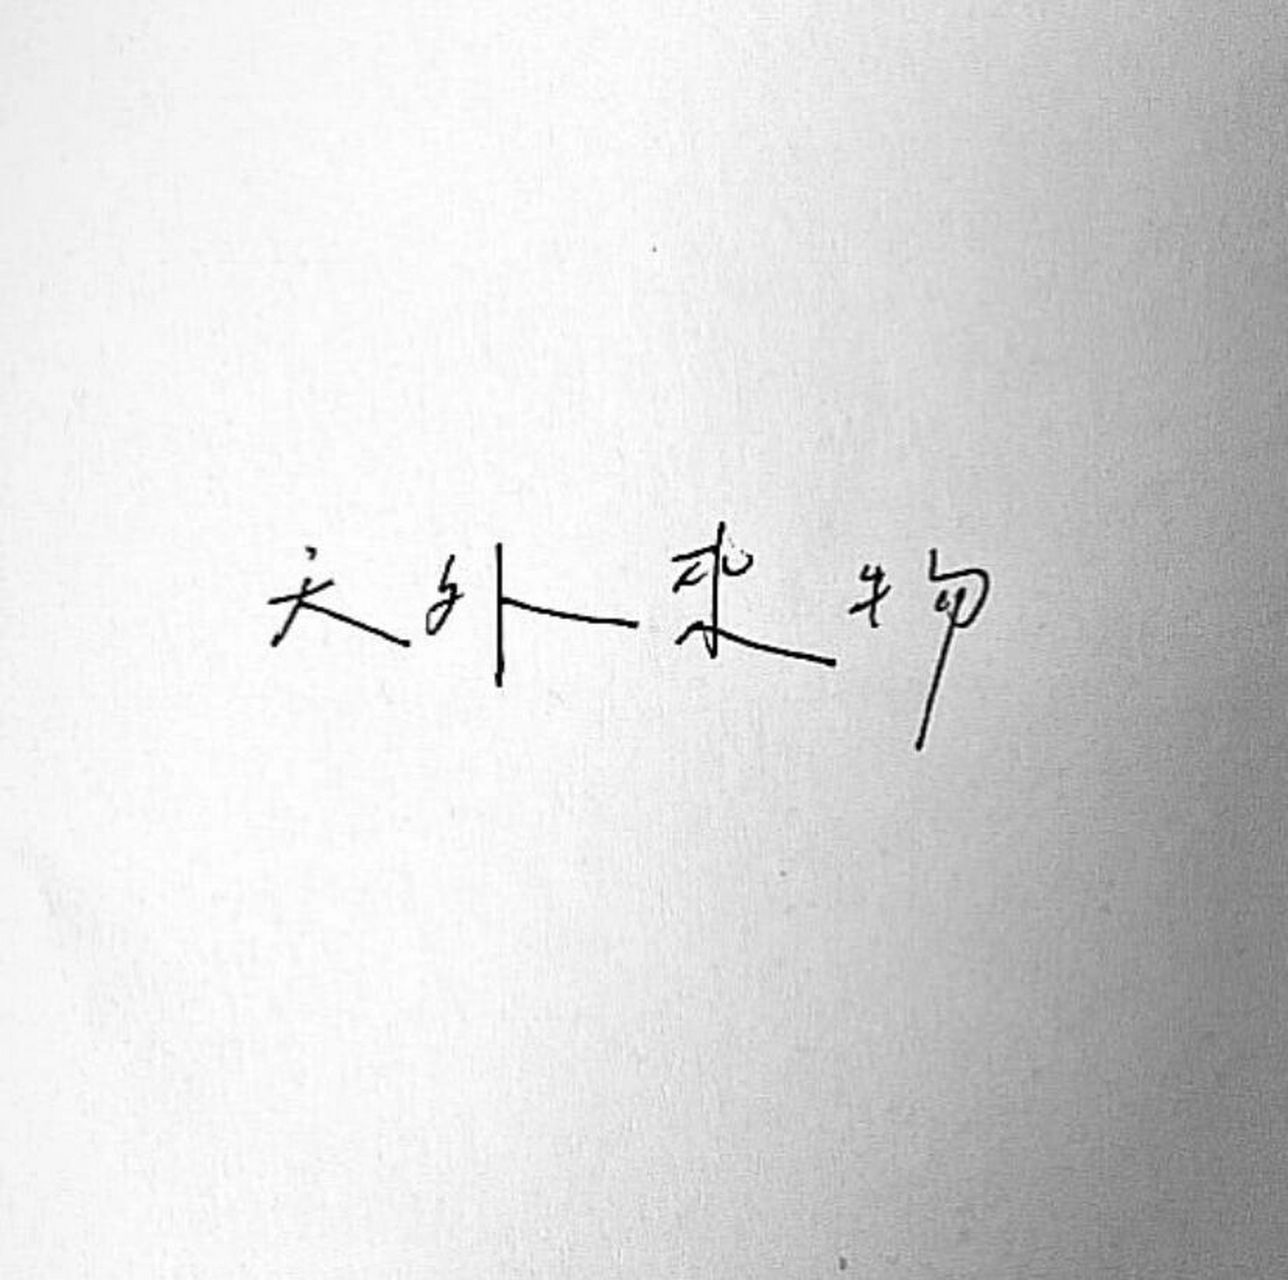 天外来物